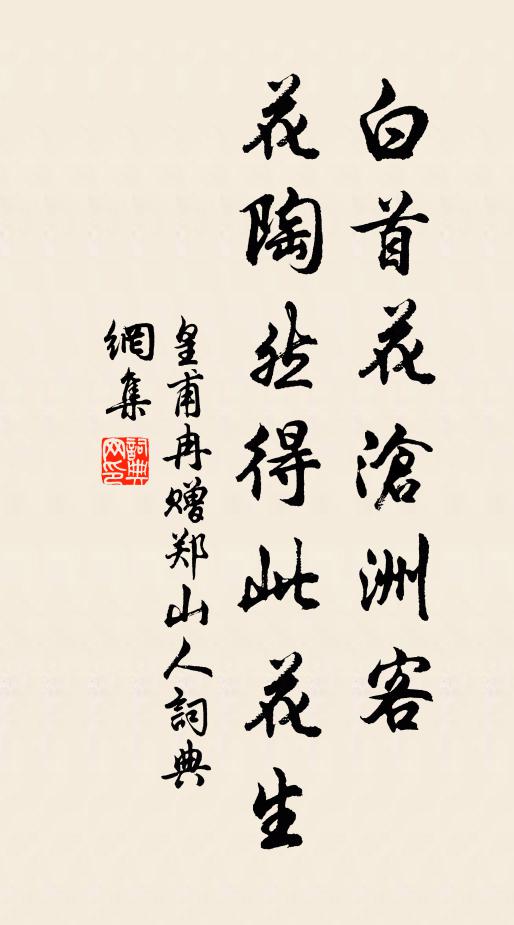 白首花滄洲客
花陶然得此花生
皇甫冉赠郑山人詞典
網集
詞典网印